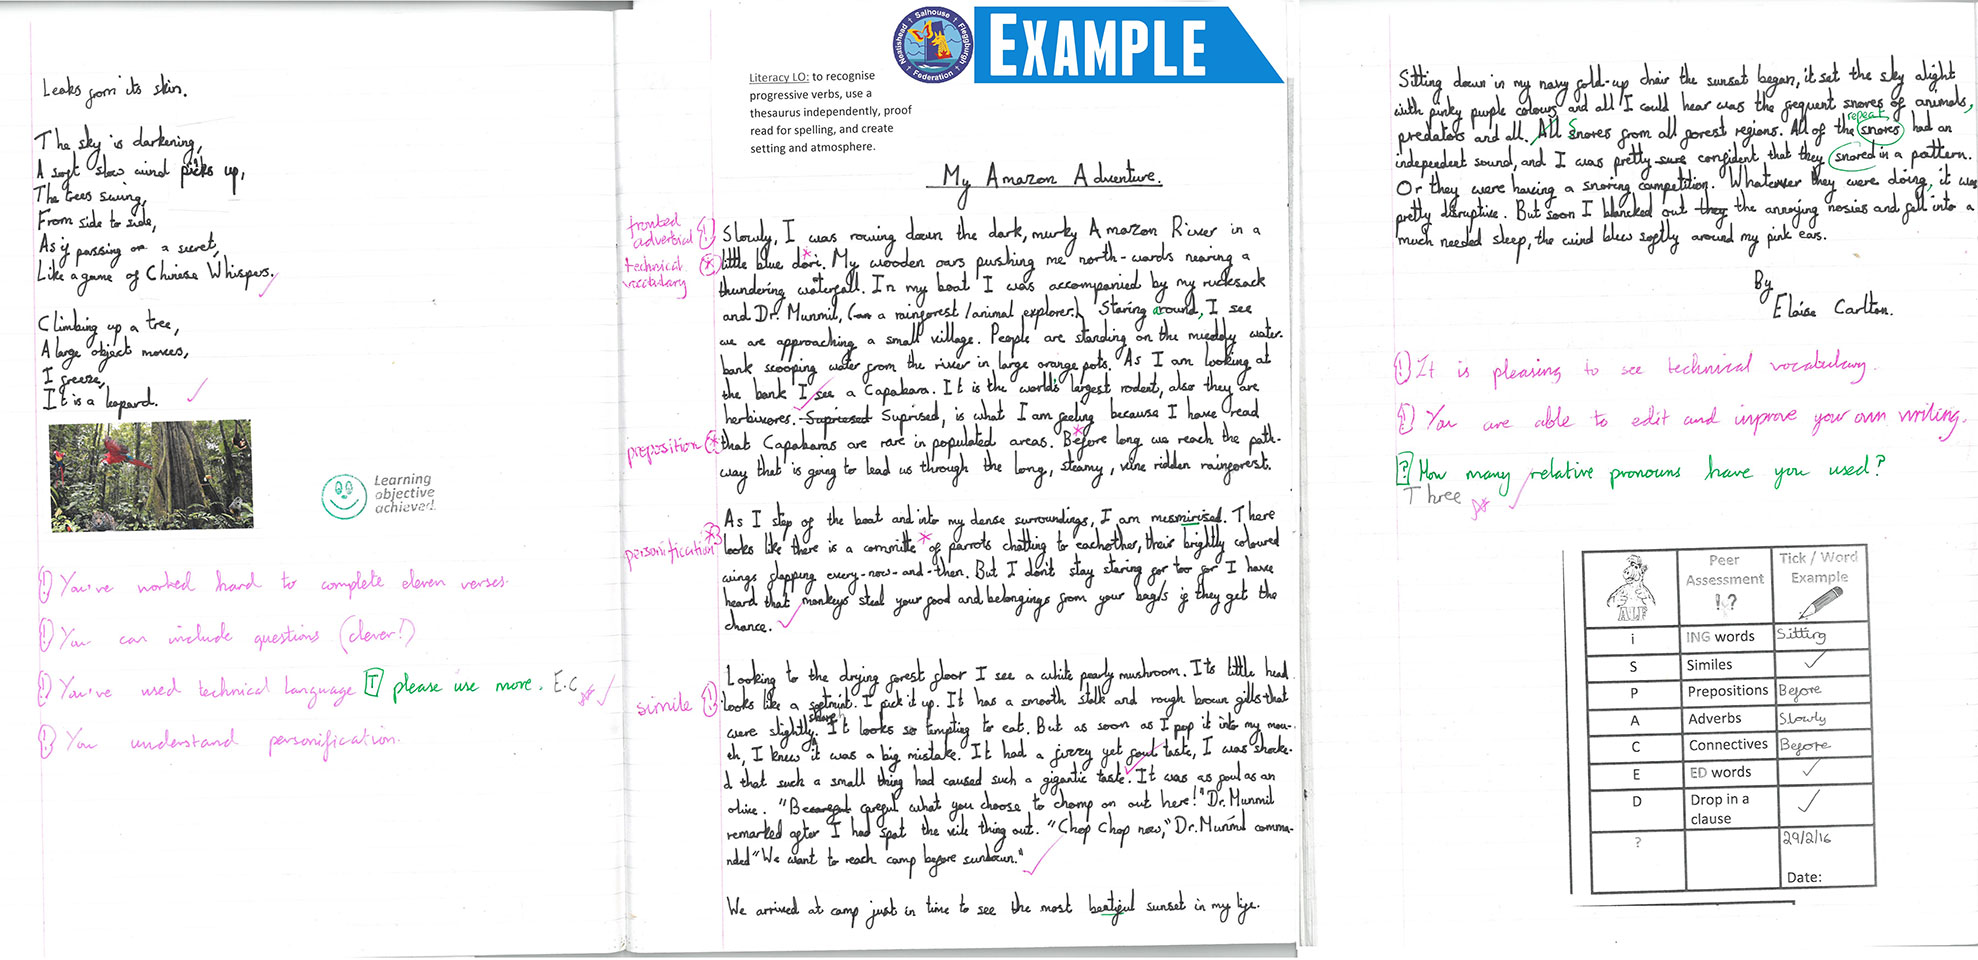 Leaks from its skin.
The sky is darkening,
A soft slow wind picks up,
The trees swing,
From side to side,
As if passing on a secret,
Like a game of Chinese Whispers.
Climbing up a tree,
A large object moves,
I freeze,
It is a leopard.
Learning
objective
achieved.
! You've worked hard to complete eleven verses.
! You can include questions (clever!)
! You've used technical language T please use more. E.C
! You understand personification.
Neatishead Salhouse Fleggburgh Federation
EXAMPLE
Literacy LO: to recognise
progressive verbs, use a
thesaurus independently, proof
read for spelling, and create
setting and atmosphere.
My Amazon Adventure.
fronted
adverbial !
technical
vocabulary
preposition
personification
simile !
Slowly, I was rowing down the dark, murky Amazon River in a
little blue dori. My wooden oars pushing me north-words nearing a
thundering waterfall. In my boat I was accompanied by my rucksack
and Dr. Munmil, (a rainforest/animal explorer.) Staring around, I see
we are approaching a small village. People are standing on the muddy water-
bank scooping water from the river in large orange pots. As I am looking at
the bank I see a Capabara. It is the world's largest rodent, also they are
herbivores. Supriesed Suprised, is what I am feeling because I have read
that Capabaras are rare in populated areas. Before long we reach the path-
way that is going to lead us through the long, steamy, vine ridden rainforest.
As I step of the boat and into my dense surroundings, I am mesmirised. There
looks like there is a committe of parrots chatting to eachother, their brightly coloured
wings flapping every-now-and-then. But I don't stay staring for too far I have
heard that monkeys steal your food and belongings from your bag/s if they get the
chance.
Looking to the drying forest floor I see a white pearly mushroom. Its little head
looks like a I pick it up. It has a smooth stalk and rough brown gills that
were slightly It looks so tempting to eat. But as soon as I pop it into my mou-
th, I knew it was a big mistake. It had a fizzy yet foul taste, I was shocke-
d that such a small thing had caused such a gigantic taste. It was as foul as an
olive. "Be careful what you choose to chomp on out here!" Dr. Munmil
remarked after I had spat the vile thing out. "Chop Chop now," Dr. Munmil comma-
nded "We want to reach camp before sundown."
We arrived at camp just in time to see the most beatiful sunset in my life.
Sitting down in my navy fold-up chair the sunset began, it set the sky alight
with pinky purple colours and all I could hear was the frequent snores of animals,
repeat
predators and all. All Snores from all forest regions. All of the snores had an
independent sound, and I was pretty sure confident that they snored in a pattern.
Or they were having a snoring competition. Whatever they were doing, it was
pretty disruptive. But soon I blancked out they the annoying nosies and fell into a
much needed sleep, the wind blew softly around my pink ears.
By
Eloise Carlton.
! It is pleasing to see technical vocabulary.
! You are able to edit and improve your own writing.
? How many relative pronouns have you used?
Three
ALF Peer Assessment !? Tick / Word Example
i ING words Sitting
S Similes ✓
P Prepositions Before
A Adverbs Slowly
C Connectives Before
E ED words ✓
D Drop in a clause ✓
? 29/2/16
Date: